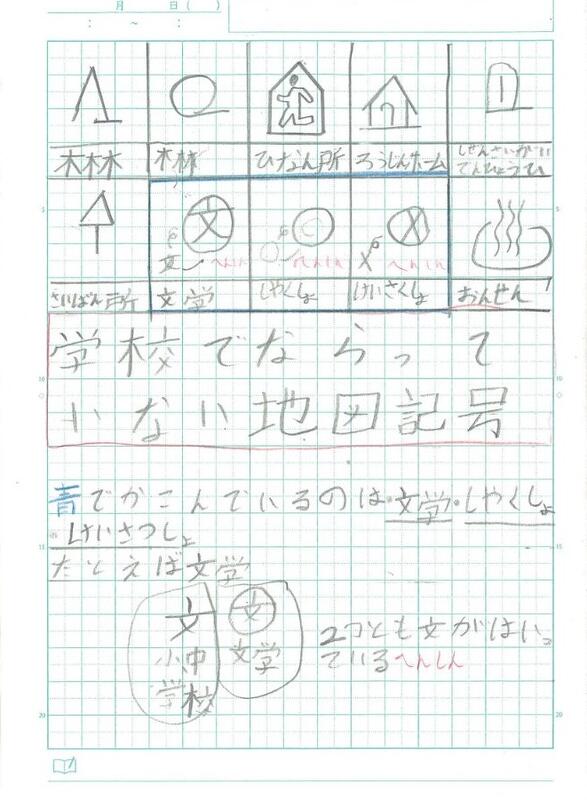 月 日( )
: ~ :
ひなん所 ろうじんホーム しぜんさいがい
でんしょうひ
文
文 へんしん へんしん へんしん
さいばん所 文学 しやくしょ けいさくしょ おんせん
学校でならって
いない地図記号
青でかこんでいるのは・文学・しやくしょ
・けいさつしょ
たとえば文学
文 文
小中 文学
学校
2つとも文がはいっ
ているへんしん